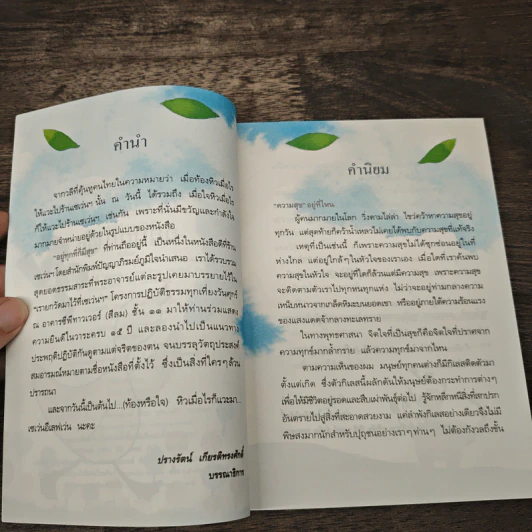 คำนำ
จากวลีที่คุ้นหูคนไทยในความหมายว่า เมื่อท้องหิวเมื่อไร
ก็ให้แวะไปร้านเซเว่นฯ นั้น ณ วันนี้ ได้รวมถึง เมื่อใจหิวเมื่อไร
ก็ให้แวะไปร้านเซเว่นฯ เช่นกัน เพราะที่นั่นมีขวัญและกำลังใจ
มากมายจำหน่ายอยู่ด้วยในรูปแบบของหนังสือ
"อยู่ทุกที่ก็มีสุข" ที่ท่านถืออยู่นี้ เป็นหนึ่งในหนังสือดีที่ร้าน
เซเว่นฯ โดยสำนักพิมพ์ปัญญาภิรมย์ภูมิใจนำเสนอ เราได้รวบรวม
สุดยอดธรรมสาระที่พระอาจารย์แต่ละรูปเคยมาบรรยายไว้ใน
"เรายกวัดมาไว้ที่เซเว่นฯ" โครงการปฏิบัติธรรมทุกเที่ยงวันศุกร์
ณ อาคารซีพีทาวเวอร์ (สีลม) ชั้น ๑๑ มาให้ท่านร่วมแสดง
ความยินดีในวาระครบ ๑๕ ปี และลองนำไปเป็นแนวทาง
ประพฤติปฏิบัติกันดูตามแต่จริตของตน จนบรรลุวัตถุประสงค์
สมอารมณ์หมายตามชื่อหนังสือที่ตั้งไว้ ซึ่งเป็นสิ่งที่ใครๆ ล้วน
ปรารถนา
และจากวันนี้เป็นต้นไป...(ท้องหรือใจ) หิวเมื่อไรก็แวะมา...
เซเว่นอีเลฟเว่น นะคะ
ปรางรัตน์ เกียรติทรงศักดิ์
บรรณาธิการ
คำนิยม
"ความสุข" อยู่ที่ไหน
ผู้คนมากมายในโลก วิ่งตามไล่ล่า ไขว่คว้าหาความสุขอยู่
ทุกวัน แต่สุดท้ายก็คว้าน้ำเหลวไม่เคยได้พบกับความสุขที่แท้จริง
เหตุที่เป็นเช่นนี้ ก็เพราะความสุขไม่ได้ซุกซ่อนอยู่ในที่
ห่างไกล แต่อยู่ใกล้ๆ ในหัวใจของเราเอง เมื่อใดที่เราค้นพบ
ความสุขในหัวใจ จะอยู่ที่ใดก็ล้วนแต่มีความสุข เพราะความสุข
จะติดตามตัวเราไปทุกหนทุกแห่ง ไม่ว่าจะอยู่ท่ามกลางความ
เหน็บหนาวจากเกล็ดหิมะบนยอดเขา หรืออยู่ภายใต้ความร้อนแรง
ของแสงแดดจ้ากลางทะเลทราย
ในทางพุทธศาสนา จิตใจที่เป็นสุขก็คือจิตใจที่ปราศจาก
ความทุกข์มากล้ำกราย แล้วความทุกข์มาจากไหน
ตามความเห็นของผม มนุษย์ทุกคนต่างก็มีกิเลสติดตัวมา
ตั้งแต่เกิด ซึ่งตัวกิเลสนี้ผลักดันให้มนุษย์ต้องกระทำการต่างๆ
เพื่อให้มีชีวิตอยู่รอดและสืบเผ่าพันธุ์ต่อไป รู้จักหลีกหนีสิ่งที่สกปรก
อันตรายไปสู่สิ่งที่สะอาดสวยงาม แต่ลำพังกิเลสอย่างเดียวจึงไม่มี
พิษสงมากนักสำหรับปุถุชนอย่างเราๆ ท่านๆ ไม่ต้องกังวลถึงขั้น